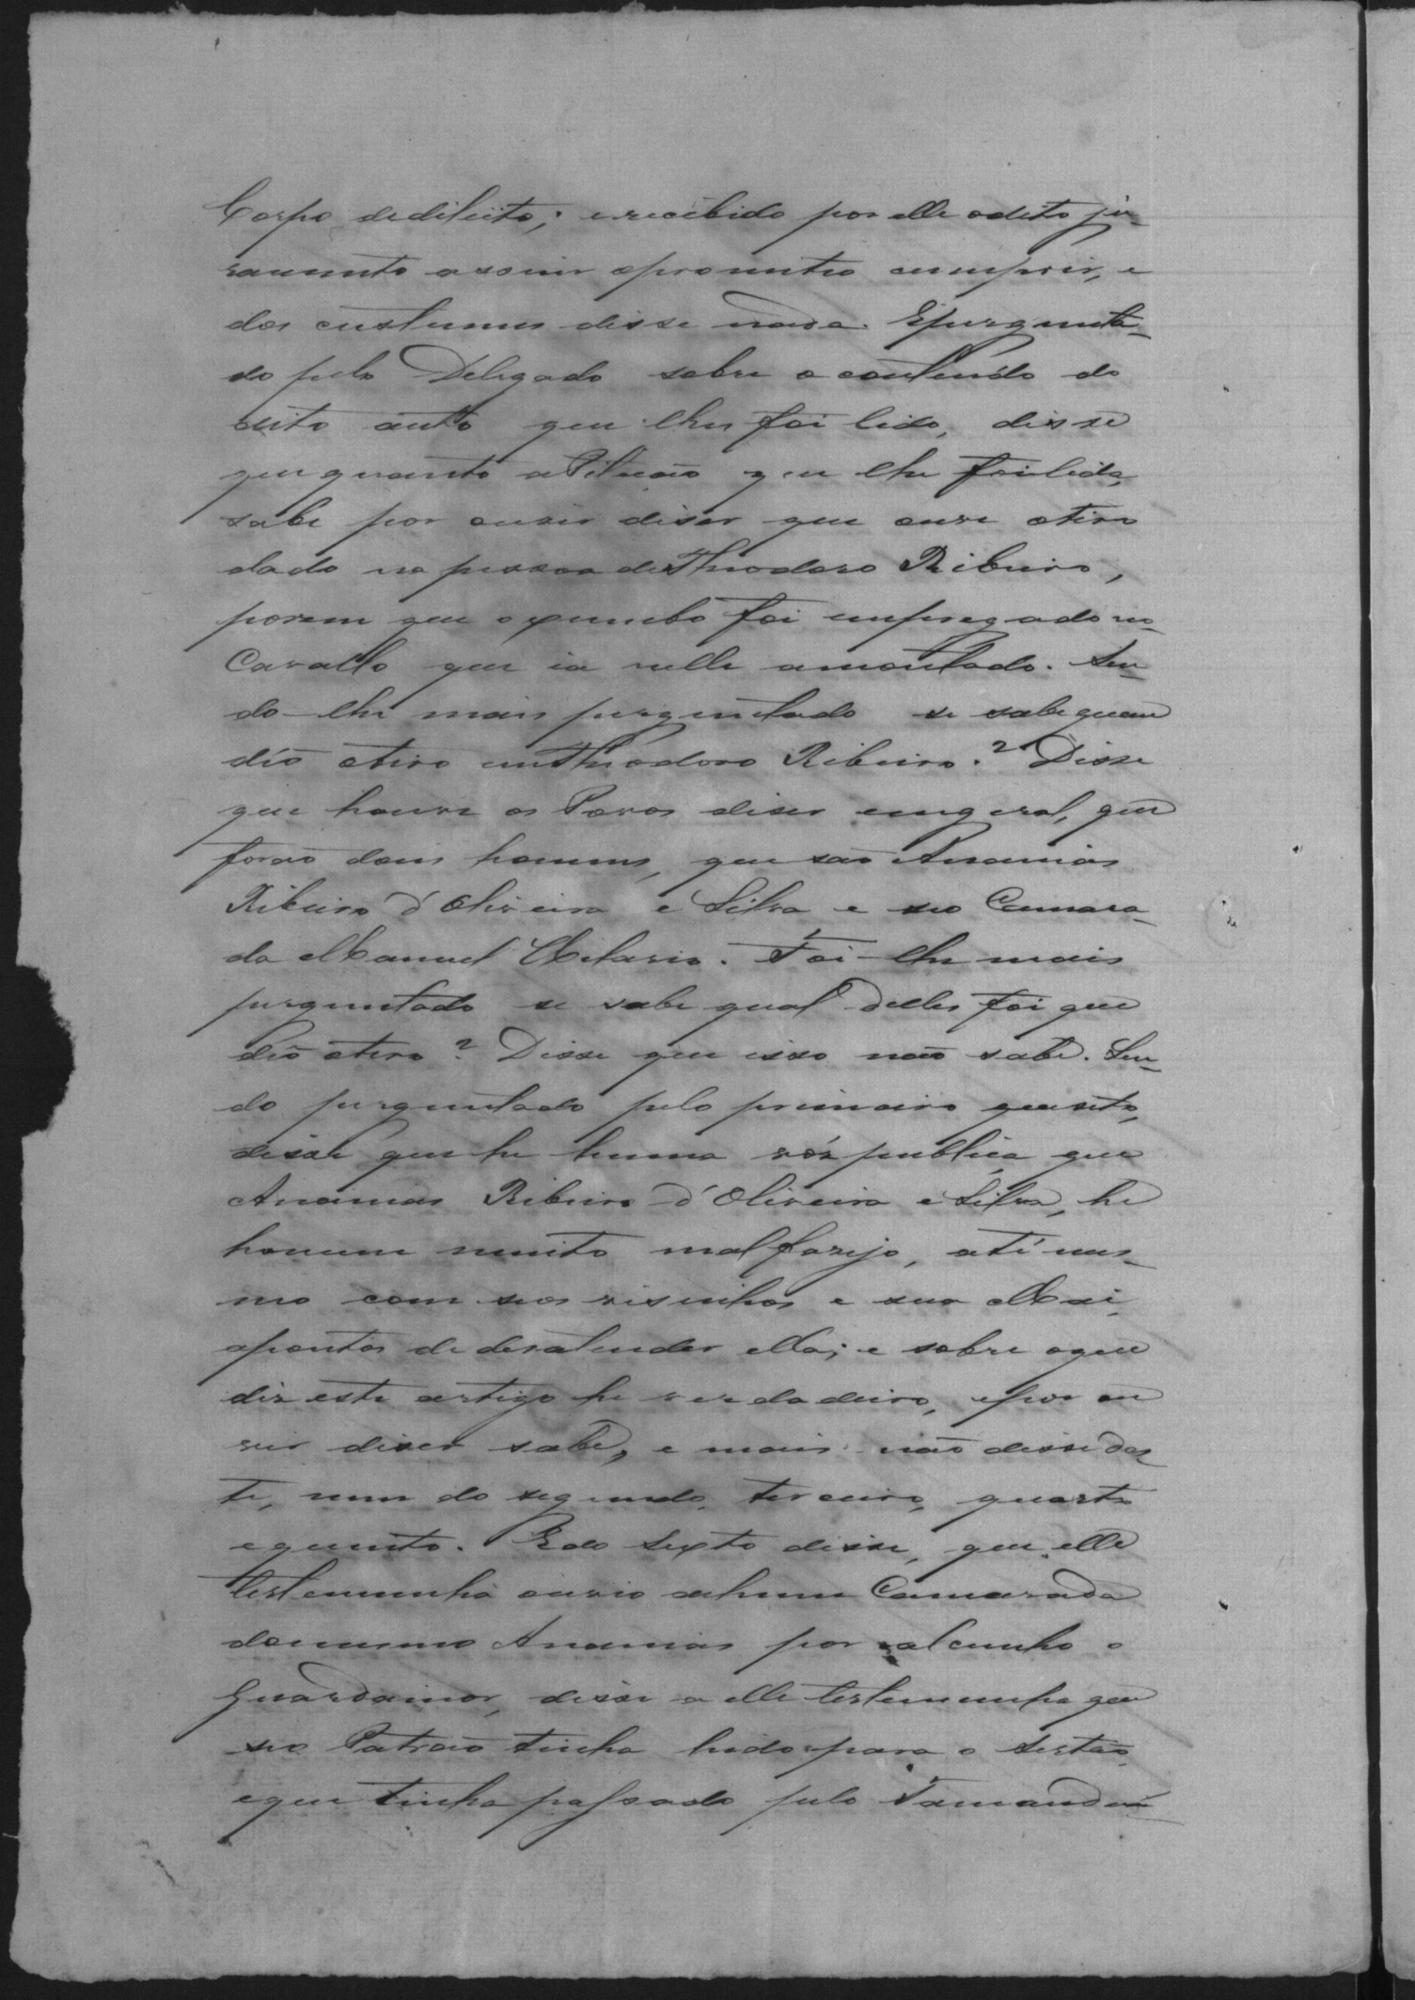 Corpo dediliito; erecebido por elle odito ju-
ramento assim oprometeo cumprir, e
dos custumes disse nada. Epergunta-
do pelo Delegado sobre o contendo do
dito auto que lhes foi lido, disse
que quanto a Pitição que lhe foi lida,
sabe por ouvir diser que ouve otiro
dado na pessoa de Theodoro Ribeiro,
porem que oxumbo foi empregado no
Cavallo que ia nelle amontado. Sen-
do-lhe mais perguntado se sabe quem
dêo otiro em Theodoro Ribeiro.? Disse
que houve os Povos diser emgeral, que
forão dous homens, que são Ananias
Ribeiro d'Oliveira e Silva e seo Camara-
da Manuel Hilario. Foi-lhe mais
perguntado se sabe qual delles foi que
dêo otiro? Disse que isso não sabe. Sen-
do perguntado pelo primeiro quesito,
disse que he huma vós publica que
Ananias Ribeiro d'Oliveira e Silva, he
homem muito malfasejo, até mes-
mo com seos visinhos e sua Mai,
apontos de desatender ella; e sobre oque
dis este artigo he verdadeiro, epor ou
vir diser sabe, e mais não disse des
te, nem do segundo, terceiro, quarto
equinto. E do sexto disse, que elle
testemunha ouvio ahum Camarada
domesmo Ananias por alcunho o
Guardamor, disse a elle testemunha que
seo Patrão tinha hido para o Sertão,
eque tinha passado pelo Tamanduá